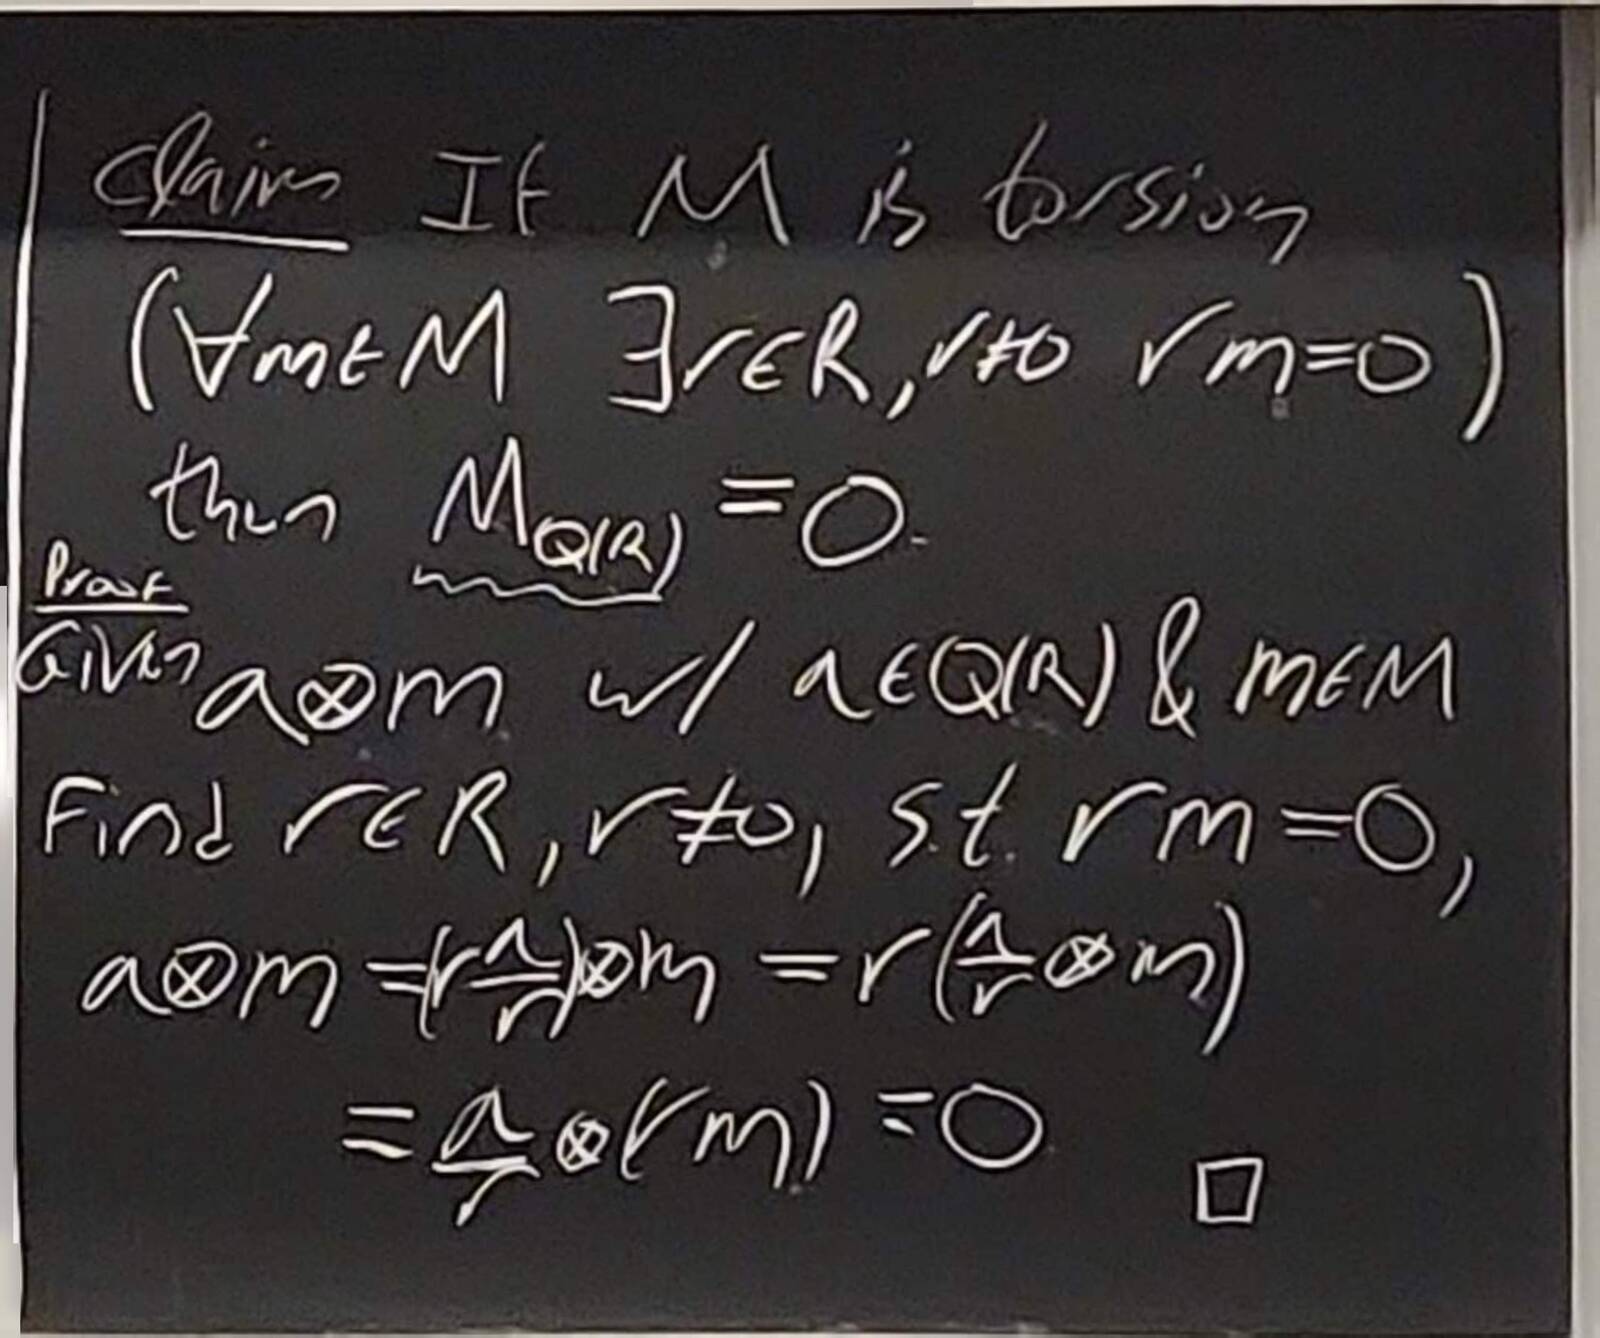 Claim If M is torsion
(∀m∈M ∃r∈R, r≠0 rm=0)
then M_Q(R) = 0.
Proof
Given a⊗m w/ a∈Q(R) & m∈M
Find r∈R, r≠0, s.t. rm=0,
a⊗m = (r a/r)⊗m = r(a/r ⊗ m)
= a/r ⊗(rm) = 0 □